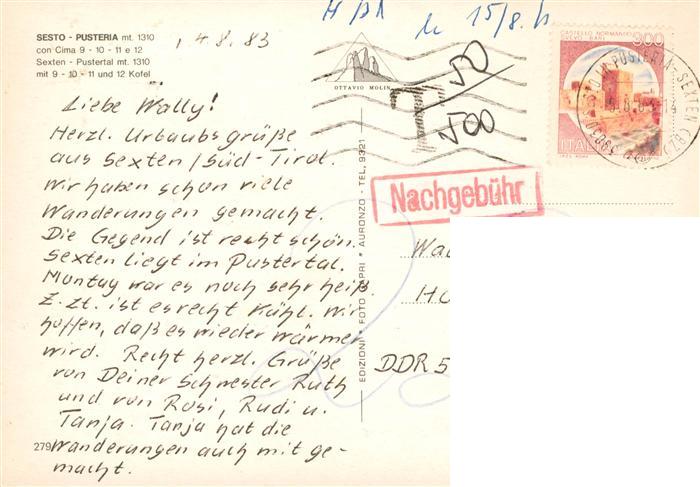 SESTO - PUSTERIA mt. 1310
con Cima 9 - 10 - 11 e 12
Sexten - Pustertal mt. 1310
mit 9 - 10 - 11 und 12 Kofel
4.8.83
Liebe Wally!
Herzl. Urlaubsgrüße
aus Sexten / Süd-Tirol.
Wir haben schon viele
Wanderungen gemacht.
Die Gegend ist recht schön.
Sexten liegt im Pustertal.
Montag war es noch sehr heiß.
Z. zt. ist es recht kühl. Wir
hoffen, daß es wieder wärmer
wird. Recht herzl. Grüße
von Deiner Schwester Ruth
und von Rosi, Rudi u.
Tanja. Tanja hat die
Wanderungen auch mit ge-
macht.
279
OTTAVIO MOLIN
EDIZIONI * FOTO CAPRI * AURONZO - TEL. 9321
15/8.
T
50
500
CASTELLO NORMANNO
SVEVO BARI
300
ITALIA
Nachgebühr
Wal
HO
DDR 5